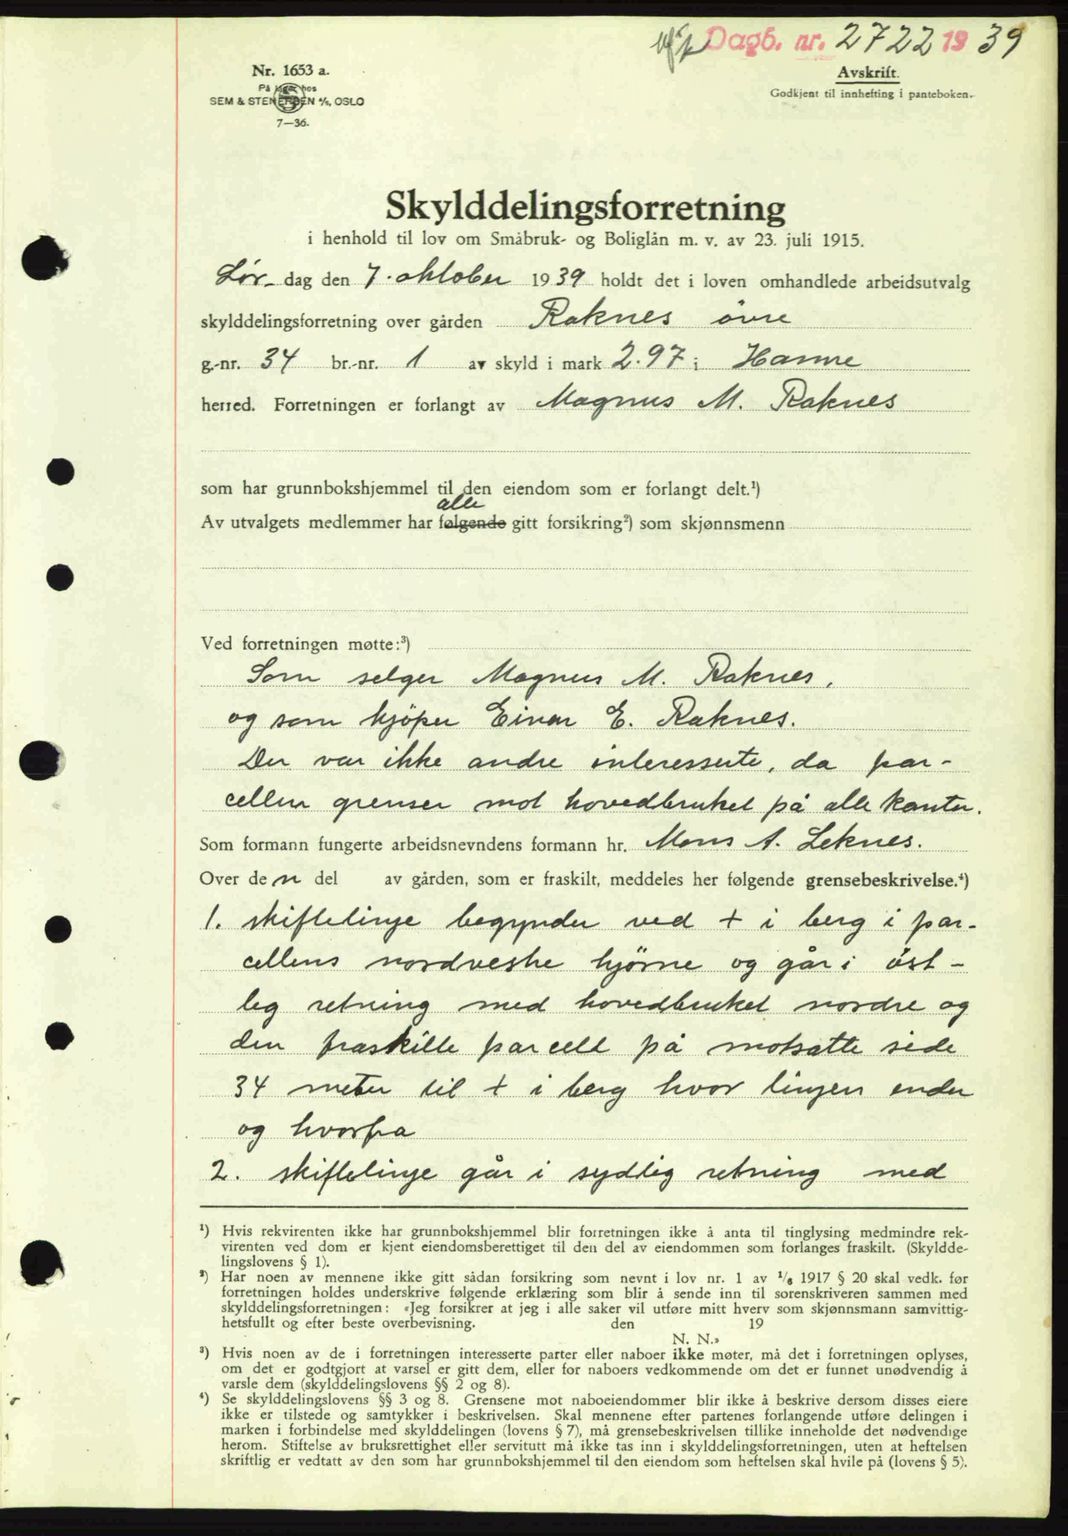 Dagb. nr. 2722 19 39
Nr. 1653 a.
På lager hos
SEM & STENERSEN A/S, OSLO
7—36.
Avskrift.
Godkjent til innhefting i panteboken.
Skylddelingsforretning
i henhold til lov om Småbruk- og Boliglån m. v. av 23. juli 1915.
Lør- dag den 7. oktober 1939 holdt det i loven omhandlede arbeidsutvalg
skylddelingsforretning over gården Raknes övre
g.-nr. 34 br.-nr. 1 av skyld i mark 2.97 i Hamre
herred. Forretningen er forlangt av Magnus M. Raknes
som har grunnbokshjemmel til den eiendom som er forlangt delt.¹)
alle
Av utvalgets medlemmer har følgende gitt forsikring²) som skjønnsmenn
Ved forretningen møtte:³)
Som selger Magnus M. Raknes,
og som kjöper Einar E. Raknes.
Der var ikke andre interesserte, da par-
cellen grenser mot hovedbruket på alle kanter.
Som formann fungerte arbeidsnevndens formann hr. Mons A. Leknes.
Over den del av gården, som er fraskilt, meddeles her følgende grensebeskrivelse.⁴)
1. skiftelinje begynder ved + i berg i par-
cellens nordvestre hjörne og går i öst-
leg retning med hovedbruket nordre og
den fraskilte parcell på motsatte side
34 meter til + i berg hvor linjen ender
og hvorfra
2. skiftelinje går i sydlig retning med
¹) Hvis rekvirenten ikke har grunnbokshjemmel blir forretningen ikke å anta til tinglysing medmindre rek-
virenten ved dom er kjent eiendomsberettiget til den del av eiendommen som forlanges fraskilt. (Skyldde-
lingslovens § 1).
²) Har noen av mennene ikke gitt sådan forsikring som nevnt i lov nr. 1 av 1/6 1917 § 20 skal vedk. før
forretningen holdes underskrive følgende erklæring som blir å sende inn til sorenskriveren sammen med
skylddelingsforretningen: «Jeg forsikrer at jeg i alle saker vil utføre mitt hverv som skjønnsmann samvittig-
hetsfullt og efter beste overbevisning. den 19
N. N.»
³) Hvis noen av de i forretningen interesserte parter eller naboer ikke møter, må det i forretningen oplyses,
om det er godtgjort at varsel er gitt dem, eller for naboers vedkommende om det er funnet unødvendig å
varsle dem (skylddelingslovens §§ 2 og 8).
⁴) Se skylddelingslovens §§ 3 og 8. Grensene mot naboeiendommer blir ikke å beskrive dersom disses eiere
ikke er tilstede og samtykker i beskrivelsen. Skal mennene efter partenes forlangende utføre delingen i
marken i forbindelse med skylddelingen (lovens § 7), må grensebeskrivelsen tillike inneholde det nødvendige
herom. Stiftelse av bruksrettighet eller servitutt må ikke tas inn i skylddelingsforretningen, uten at heftelsen
skriftlig er vedtatt av den som har grunnbokshjemmel til den eiendom som heftelsen skal hvile på (lovens § 5).